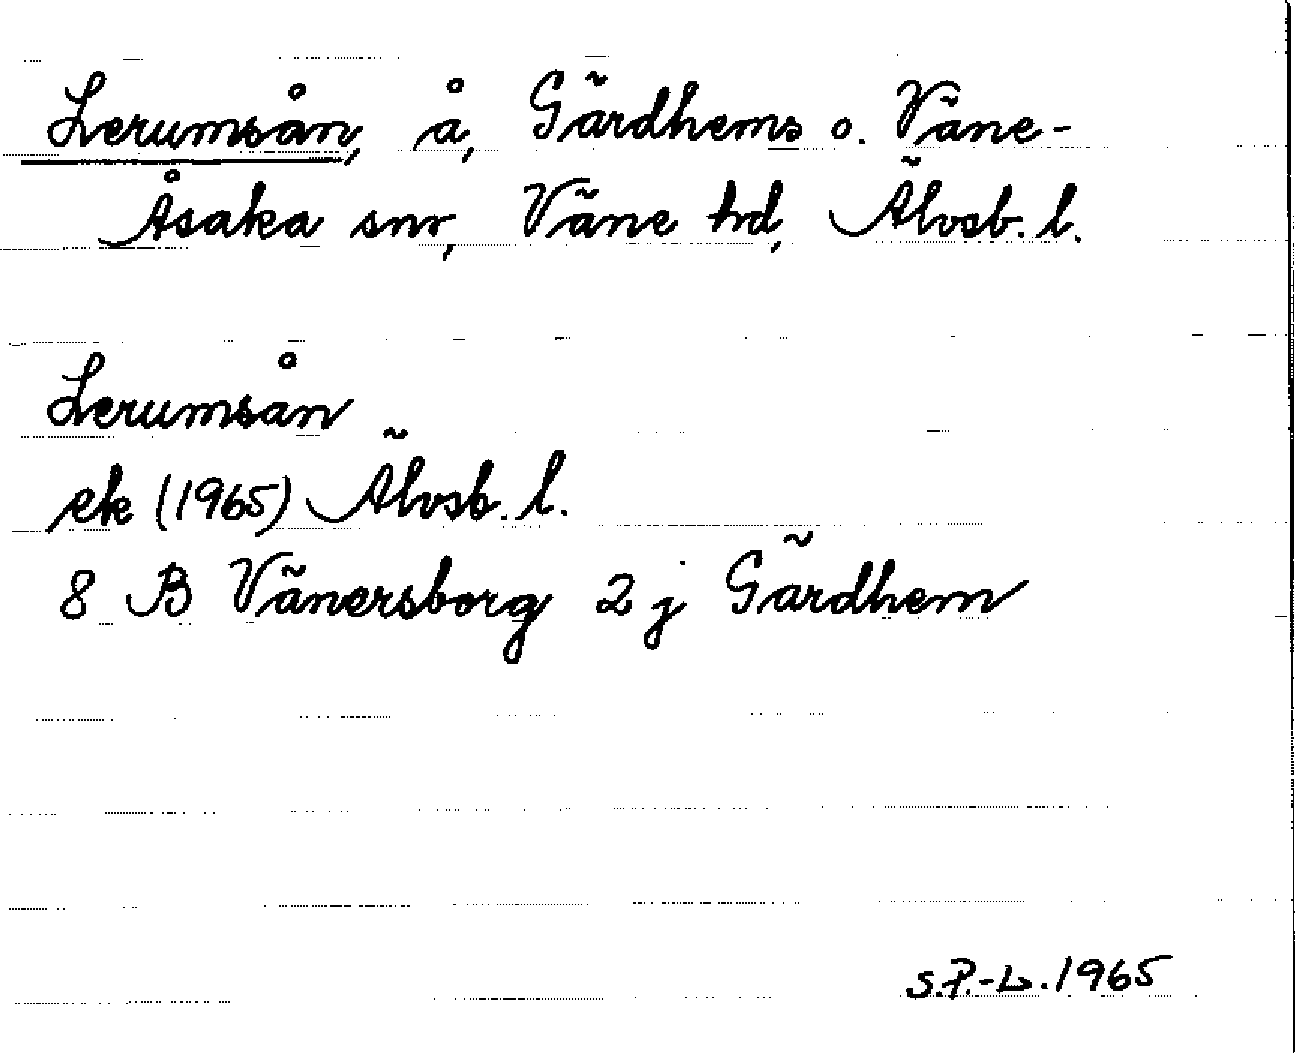 Lerumsån, å, Gärdhems o. Väne-
Åsaka snr, Väne hd, Älvsb. l.
Lerumsån
ek (1965) Älvsb. l.
8 B Vänersborg 2 j Gärdhem
S.P.-L. 1965